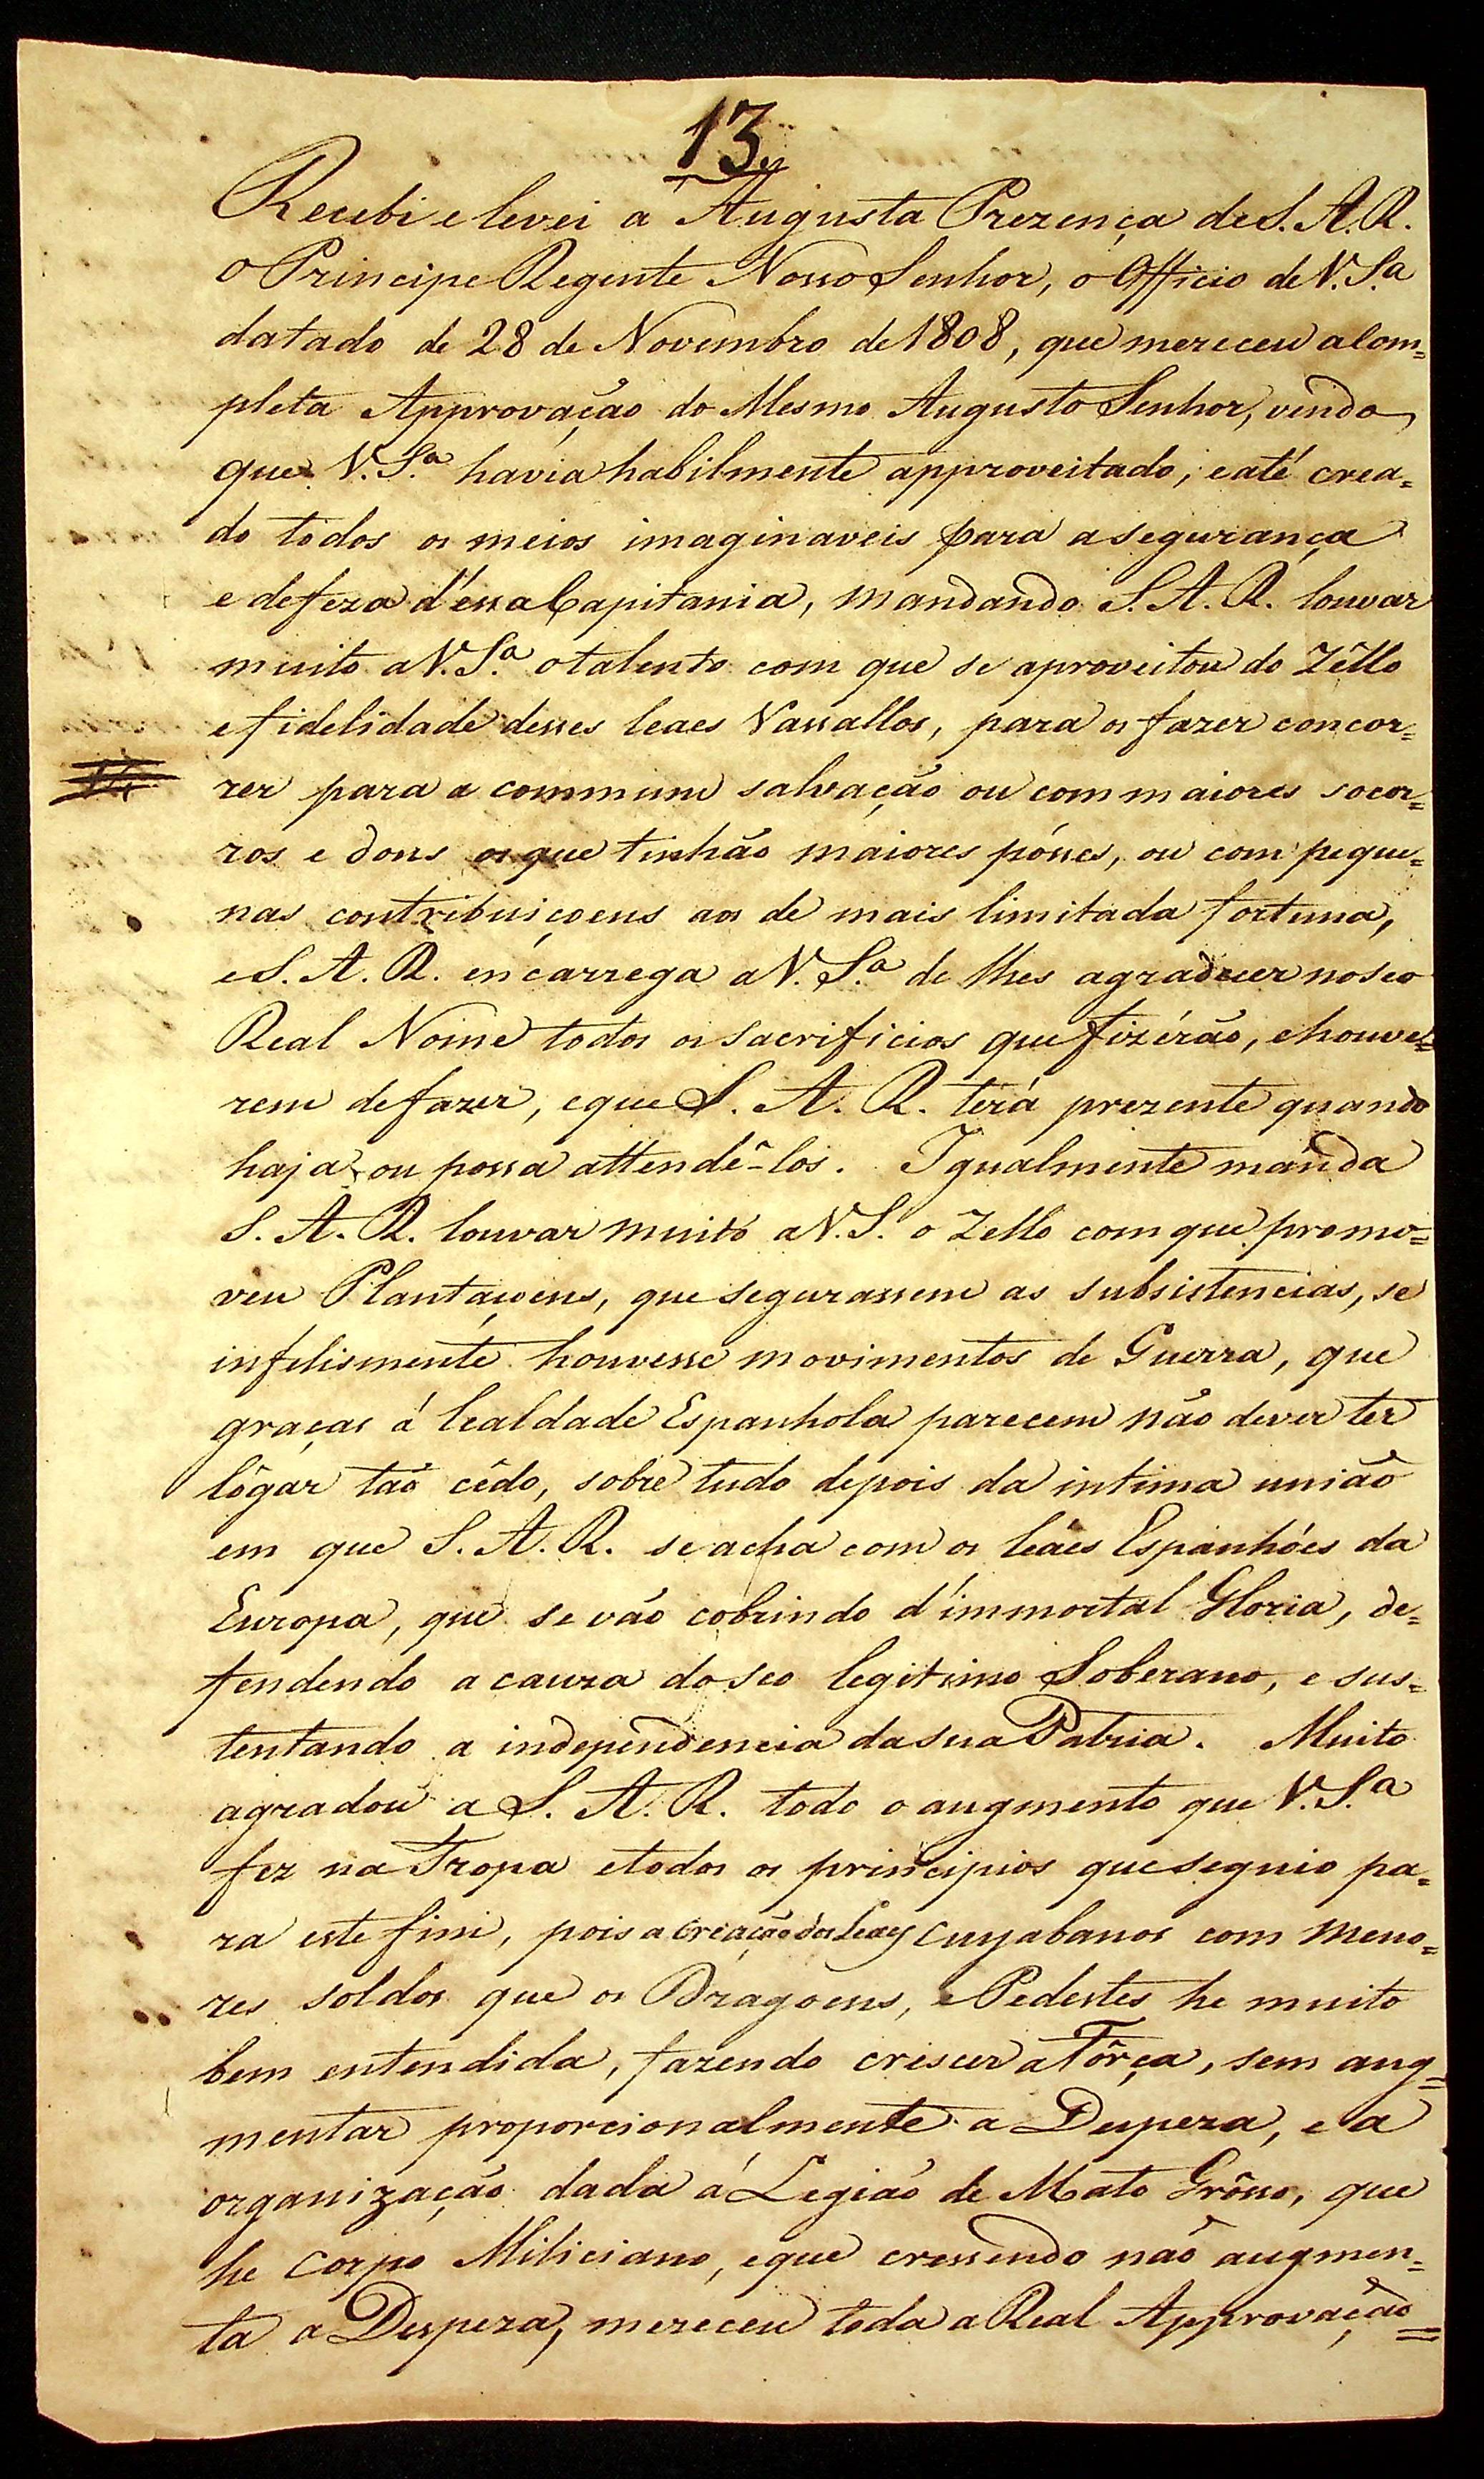 13
Recebi e levei a Augusta Prezença de S. A. R.
o Principe Regente Nosso Senhor, o Officio de V. S.ª
datado de 28 de Novembro de 1808, que mereceu a Com=
pleta Approvação do Mesmo Augusto Senhor, vendo
que V. S.ª havia habilmente approveitado, e até crea=
do todos os meios imaginaveis para a segurança
e defeza d'éssa Capitania, mandando S. A. R. louvar
muito a V. S.ª o talento com que se aproveitou do Zêllo
e fidelidade desses leaes Vassallos, para os fazer concor=
rer para a commum salvação ou com maiores socor=
ros e dons os que tinhão maiores pósses, ou com peque=
nas contribuiçoens aos de mais limitada fortuna,
e S. A. R. encarrega a V. S.ª de lhes agradecer no seo
Real Nome todos os sacrificios que fizérão, e houve=
rem de fazer, e que S. A. R. terá prezente quando
haja, ou possa attendê-los. Igualmente manda
S. A. R. louvar muito a V. S. o Zello com que promo=
veu Plantaçoens, que segurassem as subsistencias, se
infelismente houvesse movimentos de Guerra, que
graças á lealdade Espanhola parecem não dever ter
lôgar tão cêdo, sobre tudo depois da intima união
em que S. A. R. se acha com os leáes Espanhóes da
Europa, que se vão cobrindo d'immortal Gloria, de=
fendendo a cauza do seo legitimo Soberano, e sus=
tentando a independencia da sua Patria. Muito
agradou a S. A. R. todo o augmento que V. S.ª
fez na Tropa e todos os principios que seguio pa=
ra este fim, pois a creação dos Leaes Cuyabanos com meno=
res soldos que os Dragoens, e Pedestes he muito
bem entendida, fazendo crescer a Fôrça, sem aug=
mentar proporcionalmente a Despeza, e a
organização dada á Legião de Mato Grôsso, que
he corpo Miliciano, e que cressendo não augmen=
ta a Despeza, mereceu toda a Real Approvação=